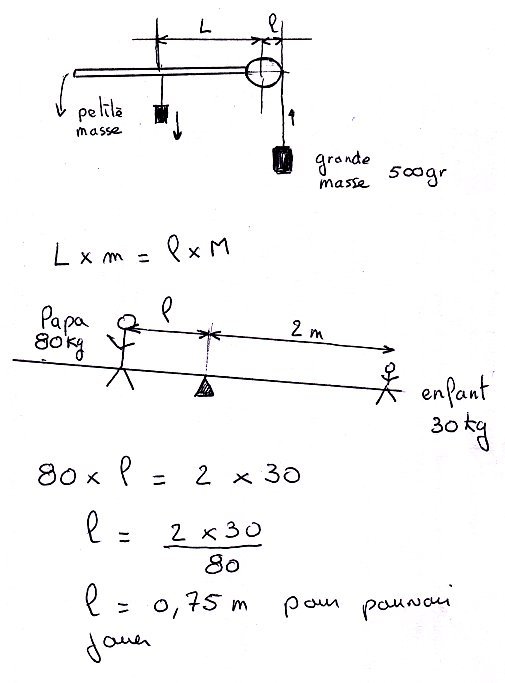 L
l
petite
masse
grande
masse 500gr
L x m = l x M
Papa
80kg
l
2 m
enfant
30 kg
80 x l = 2 x 30
l = 2 x 30
80
l = 0,75 m pour pouvoir
jouer